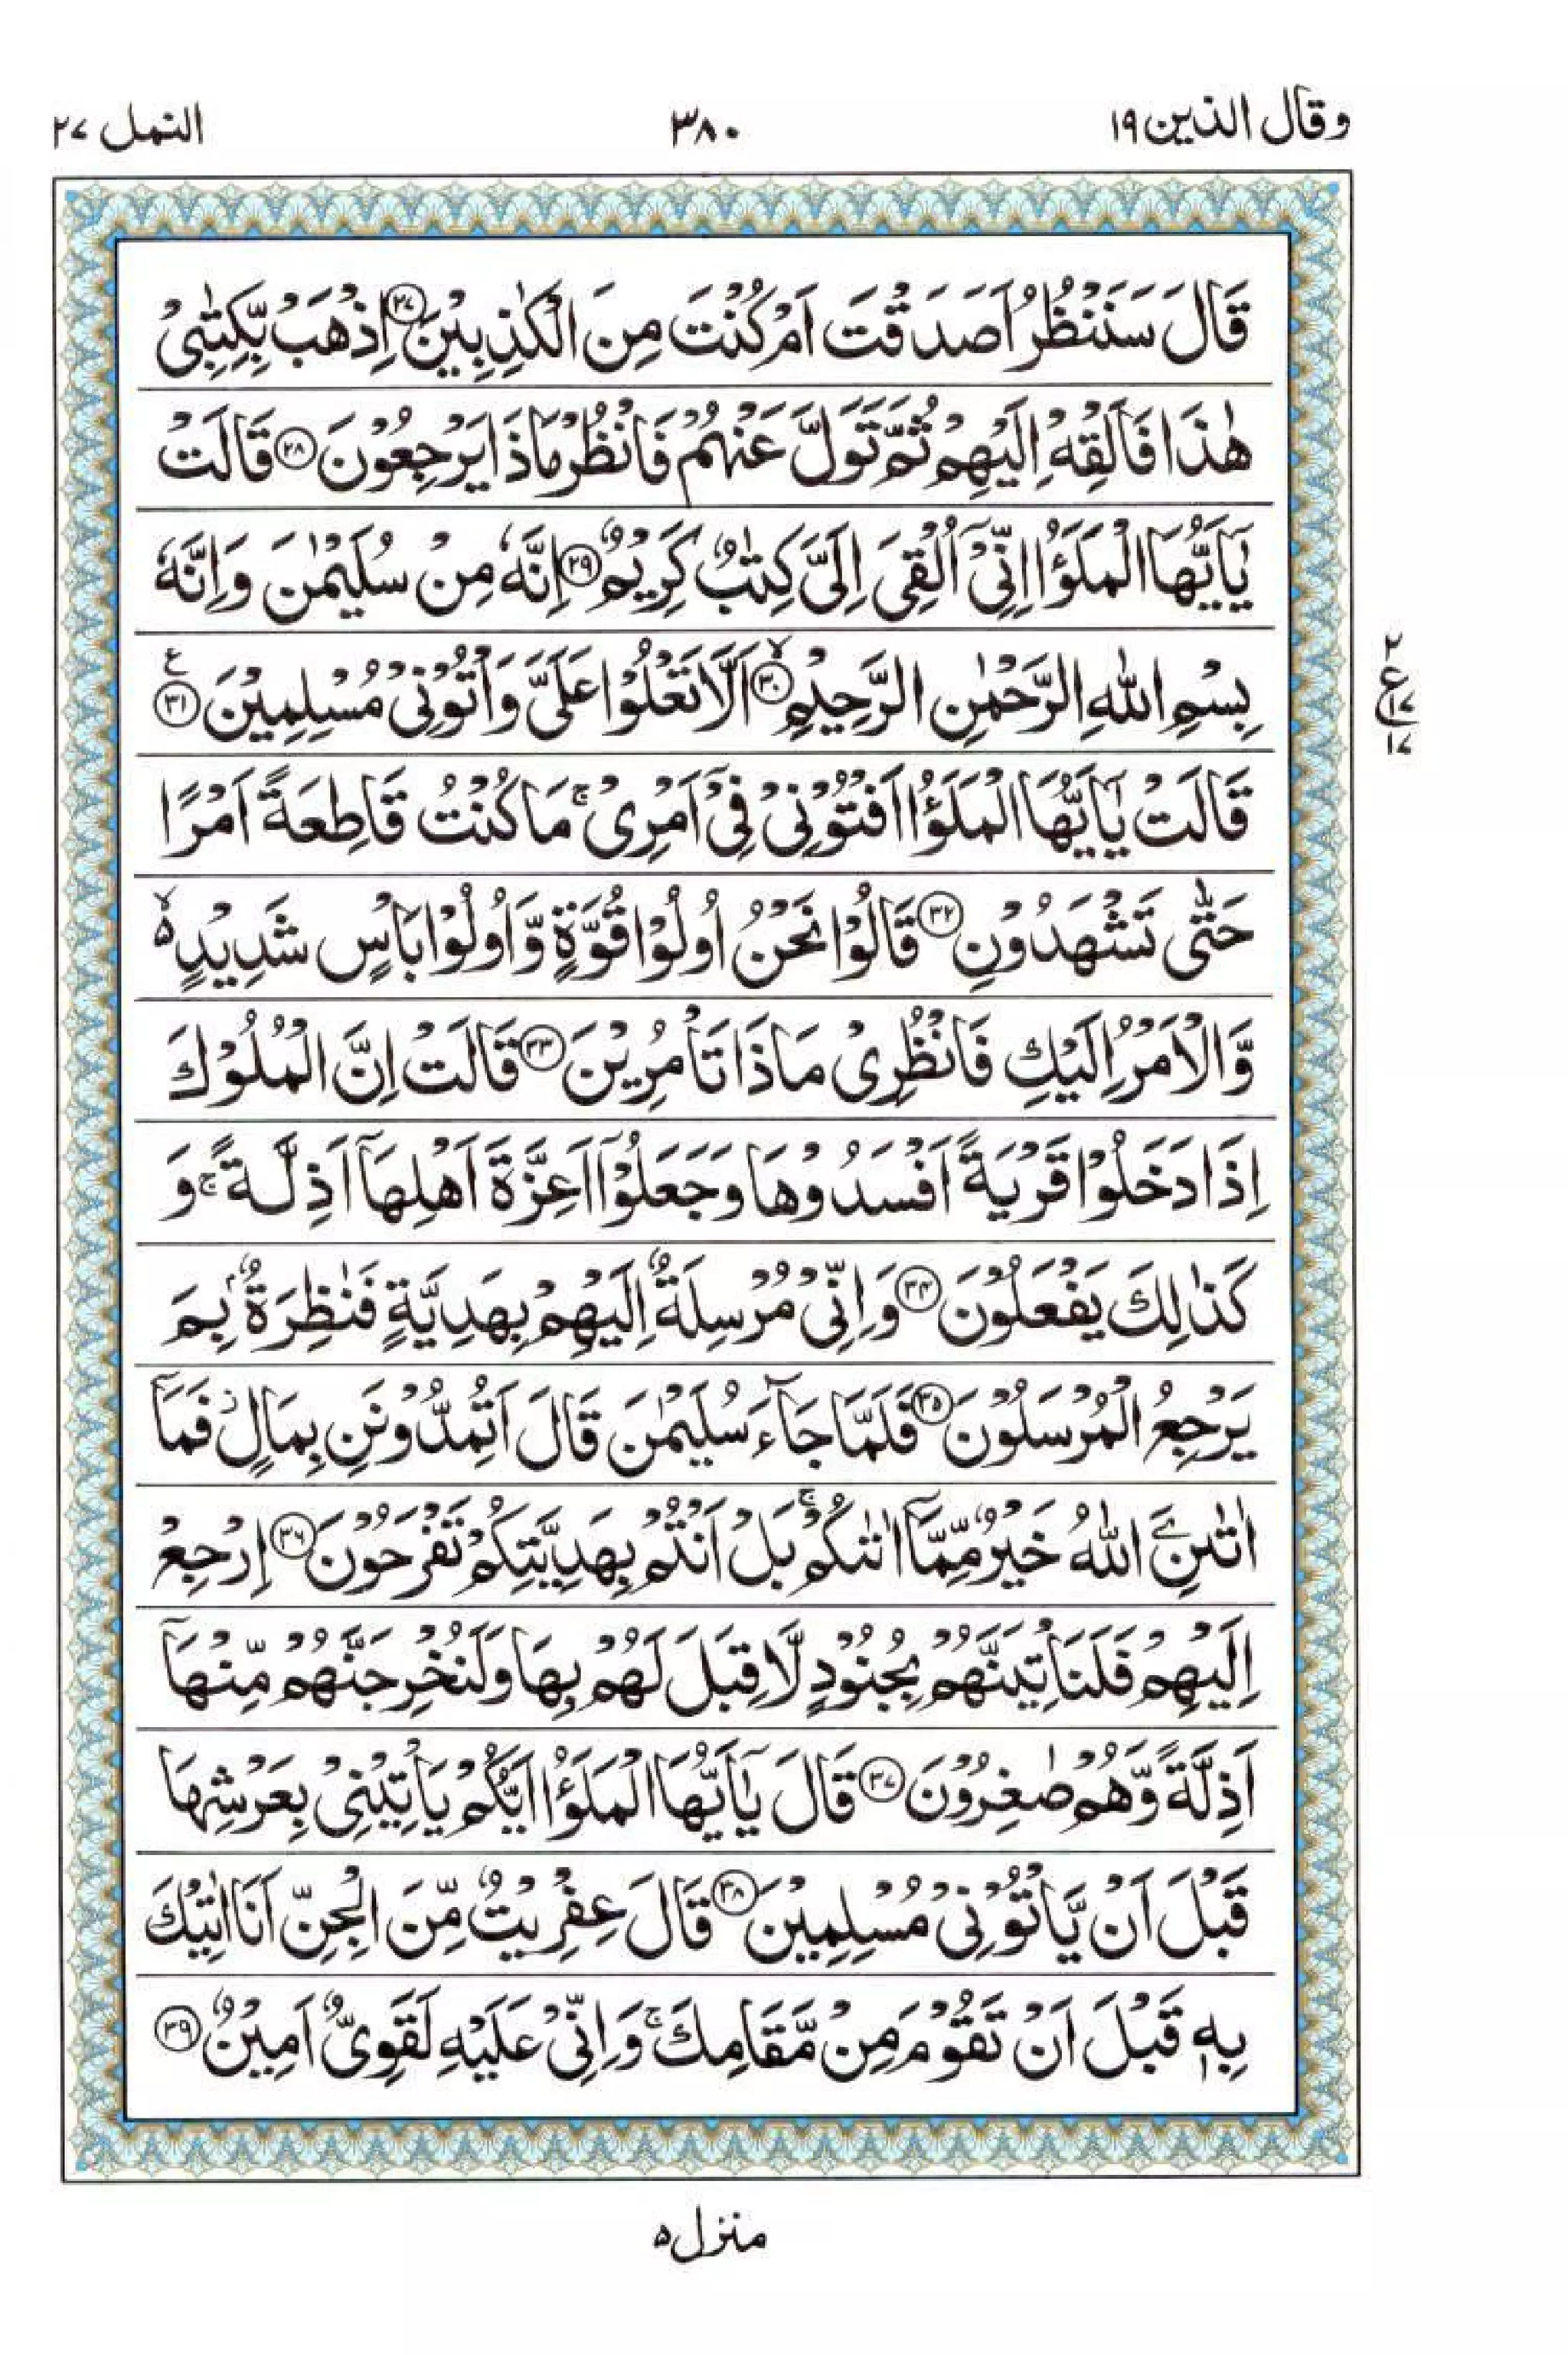 وقال الذین ۱۹
۳۸۰
النمل ۲۷
قَالَ سَنَنْظُرُ اَصَدَقْتَ اَمْ كُنْتَ مِنَ الْكٰذِبِیْنَ ۲۷ اِذْهَبْ بِّكِتٰبِیْ
هٰذَا فَاَلْقِهْ اِلَیْهِمْ ثُمَّ تَوَلَّ عَنْهُمْ فَانْظُرْ مَاذَا یَرْجِعُوْنَ ۲۸ قَالَتْ
یٰۤاَیُّهَا الْمَلَؤُا اِنِّیْۤ اُلْقِیَ اِلَیَّ كِتٰبٌ كَرِیْمٌ ۲۹ اِنَّهٗ مِنْ سُلَیْمٰنَ وَاِنَّهٗ
بِسْمِ اللّٰهِ الرَّحْمٰنِ الرَّحِیْمِ ۳۰ اَلَّا تَعْلُوْا عَلَیَّ وَاْتُوْنِیْ مُسْلِمِیْنَ ۳۱
۲
ع
۱۷
۱۷
قَالَتْ یٰۤاَیُّهَا الْمَلَؤُا اَفْتُوْنِیْ فِیْۤ اَمْرِیْ ۚ مَا كُنْتُ قَاطِعَةً اَمْرًا
حَتّٰی تَشْهَدُوْنِ ۳۲ قَالُوْا نَحْنُ اُولُوْا قُوَّةٍ وَّاُولُوْا بَاْسٍ شَدِیْدٍ ۵ۙ
وَّالْاَمْرُ اِلَیْكِ فَانْظُرِیْ مَاذَا تَاْمُرِیْنَ ۳۳ قَالَتْ اِنَّ الْمُلُوْكَ
اِذَا دَخَلُوْا قَرْیَةً اَفْسَدُوْهَا وَجَعَلُوْۤا اَعِزَّةَ اَهْلِهَاۤ اَذِلَّةً ۚ وَ
كَذٰلِكَ یَفْعَلُوْنَ ۳۴ وَاِنِّیْ مُرْسِلَةٌ اِلَیْهِمْ بِهَدِیَّةٍ فَنٰظِرَةٌۢ بِمَ
یَرْجِعُ الْمُرْسَلُوْنَ ۳۵ فَلَمَّا جَآءَ سُلَیْمٰنَ قَالَ اَتُمِدُّوْنَنِ بِمَالٍ ؗ فَمَاۤ
اٰتٰىنِ َۧ اللّٰهُ خَیْرٌ مِّمَّاۤ اٰتٰىكُمْ ۚ بَلْ اَنْتُمْ بِهَدِیَّتِكُمْ تَفْرَحُوْنَ ۳۶ اِرْجِعْ
اِلَیْهِمْ فَلَنَاْتِیَنَّهُمْ بِجُنُوْدٍ لَّا قِبَلَ لَهُمْ بِهَا وَلَنُخْرِجَنَّهُمْ مِّنْهَاۤ
اَذِلَّةً وَّهُمْ صٰغِرُوْنَ ۳۷ قَالَ یٰۤاَیُّهَا الْمَلَؤُا اَیُّكُمْ یَاْتِیْنِیْ بِعَرْشِهَا
قَبْلَ اَنْ یَّاْتُوْنِیْ مُسْلِمِیْنَ ۳۸ قَالَ عِفْرِیْتٌ مِّنَ الْجِنِّ اَنَا اٰتِیْكَ
بِهٖ قَبْلَ اَنْ تَقُوْمَ مِنْ مَّقَامِكَ ۚ وَاِنِّیْ عَلَیْهِ لَقَوِیٌّ اَمِیْنٌ ۳۹
منزل ۵